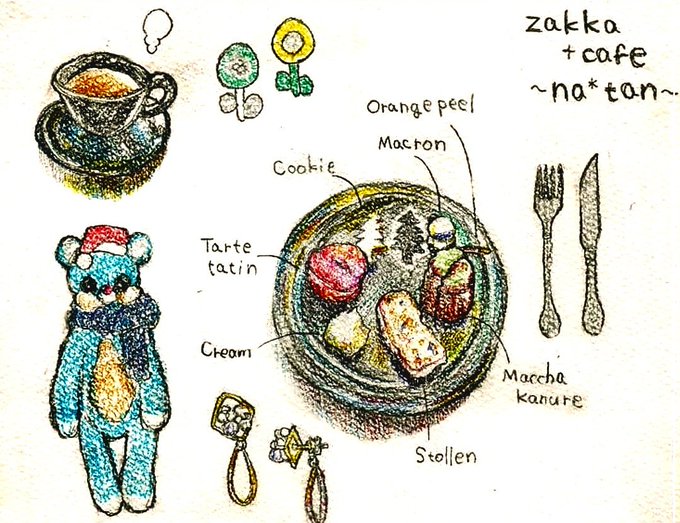 zakka
+ cafe
~na*tan~
Orange peel
Macron
Cookie
Tarte
tatin
Cream
Maccha
kanure
Stollen